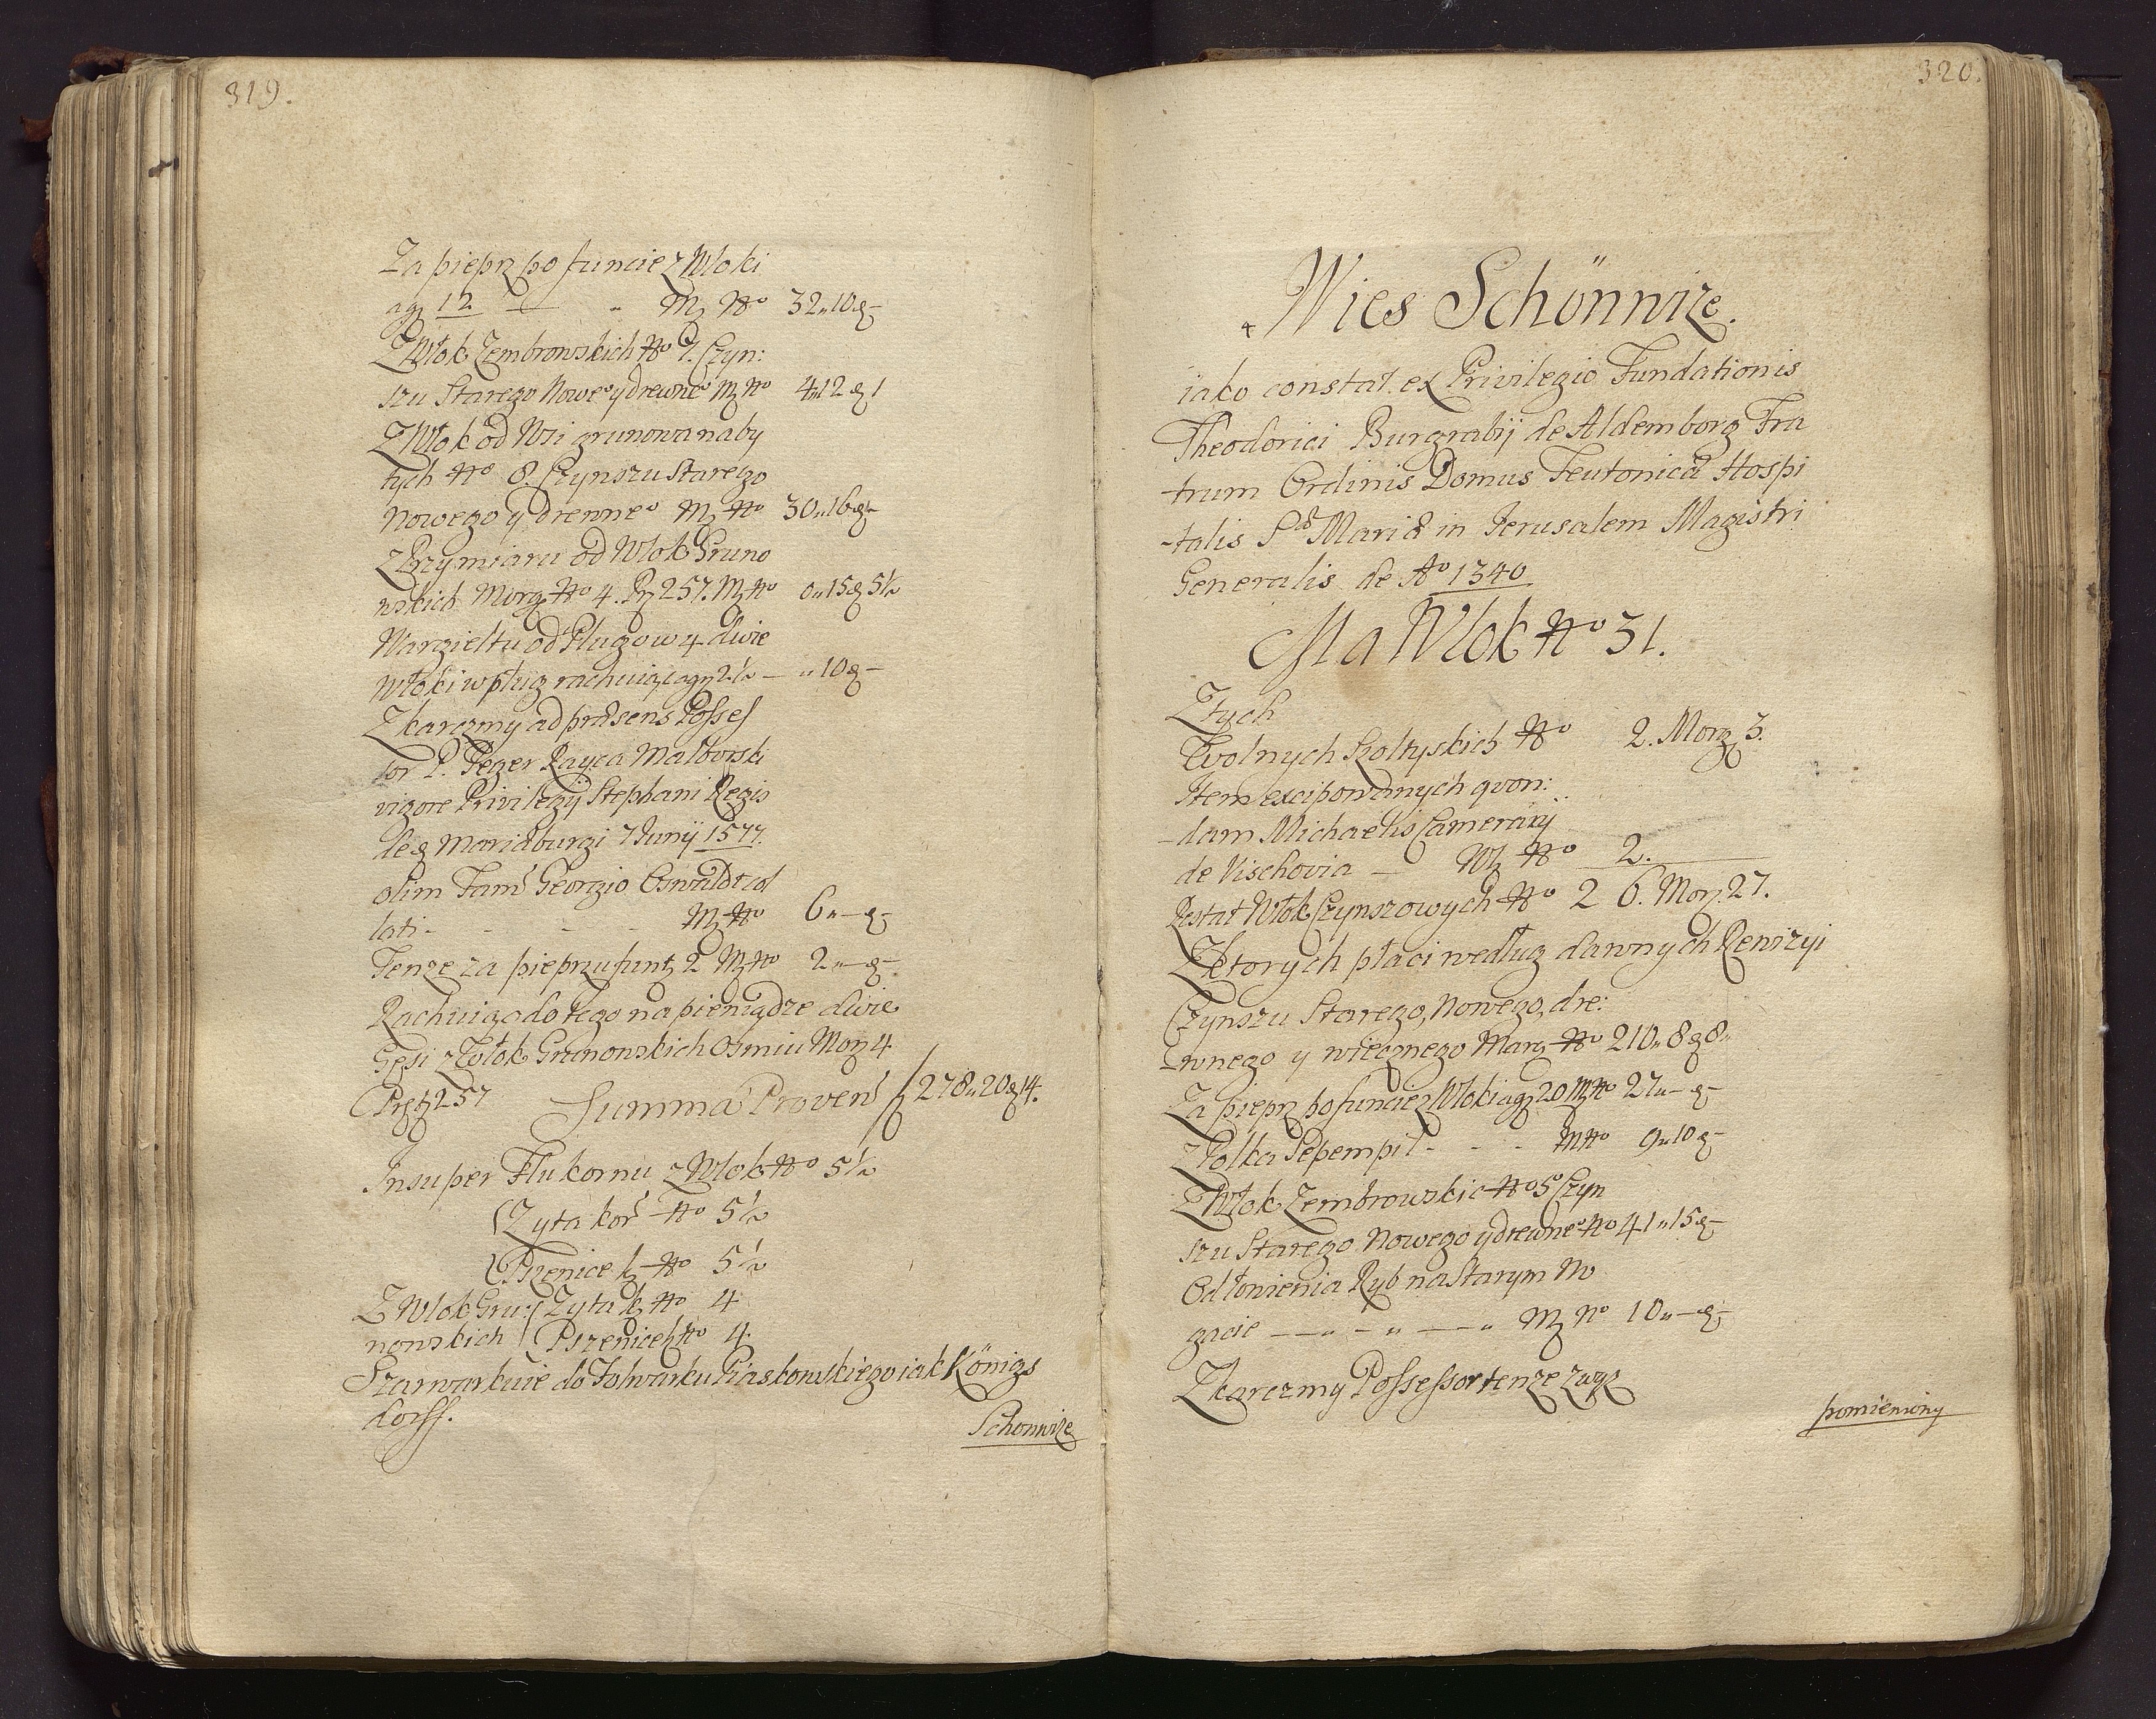 319.
Za pieprz po funcie z Wloki
a g 12 — " Mȝ No 32 " 10 g –
Z Włok Zembrowskich No 7. Czyn:
szu Starego Nowego y drewneo Mȝ No 4 " 12 g 1
Z Włok od Wsi grunowa naby
tych No 8. Czynszu Starego
Nowego y drewneo Mȝ No 30 " 16 g –
z Przymiaru od Wlok Gruno
wskich Morg No 4. Pȝ 257. Mȝ No 0 " 15 g 5½
Wargieltu od Plugow 4 dwie
Włoki w pług rachuiąc a g 2½ — " 10 g –
Z karczmy ad præsens Posses
sor P. Peger Rayca Malborski
vigore Privilegij Stephani Regis
de Mariæburgi 7 Junij 1577.
olim Fam Georgio Oswaldt col
lati - - - - Mȝ No 6 " – g –
Tenze za pieprzu funt 2 Mȝ No 2 " – g –
Rachuiąc do tego na pieniądze dwie
Gęsi z Włok Grunowskich osmiu Morg 4
Prętȝ 257 Summa Proven f 278 " 20 g 14.
Insuper Flukornu z Wlok No 5½
Zyta kor No 5½
Pszenice k No 5½
Z Wlok Gru Zyta k No 4
nowskich Pszenice k No 4
Szarwarkuie do Folwarku Piaskowskiego iak Königs
dorff.
Schonwize
320.
Wies Schönwize.
iako constat ex Privilegio Fundationis
Theodorici Burgrabij de Aldemborg Fra
trum Ordinis Domus Teutonicæ Hospi
-talis Sæ Mariæ in Jerusalem Magistri
Generalis de Ao 1340
Ma Wlok No 31.
Z tych
Wolnych Szoltyskich No 2. Morg 3.
Item excipowanych qvon:
-dam Michaelis Camerarij
de Vischovia — Wł No 2.
Restat Włok Czynszowych No 26. Morg 27.
Z ktorych płaci według dawnych Rewizyi
Czynszu Starego, Nowego, dre:
-wnego y wiecznego Marȝ No 210 " 8 g 8 "
Za pieprz po funcie z Wloki a g 20 Mȝ No 27 " – g –
z Polka Pepempil - - - M No 9 " 10 g –
Z Włok Zembrowskic No 5 Czyn
szu Starego Nowego y drewneo No 41 " 15 g –
Od łowienia Ryb na Starym No
gacie — " — " — " Mȝ No 10 " – g –
Z karczmy Possessor tenze zwyz
pomieniony